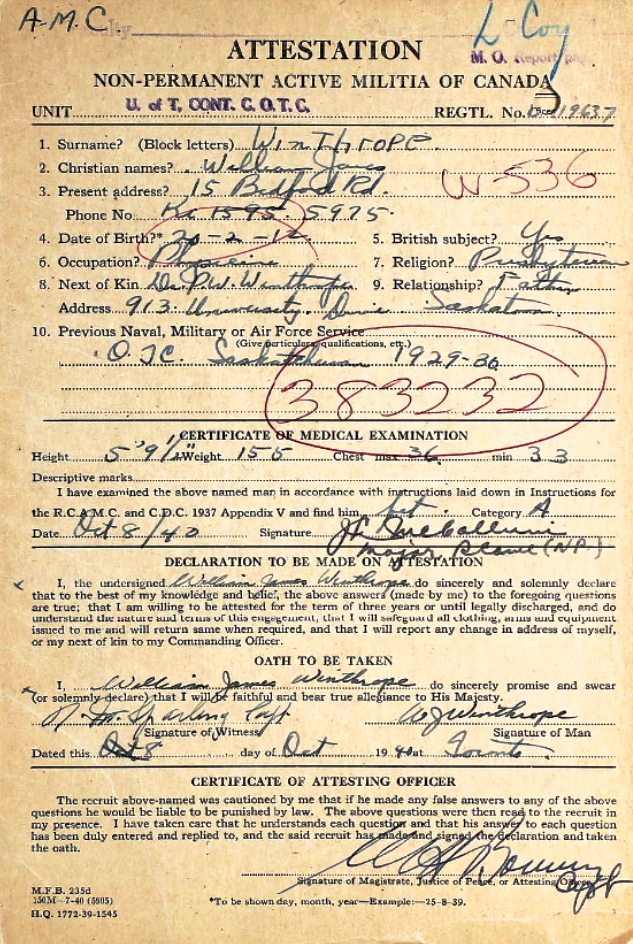 A.M.C.
L Coy
M. O. Report
ATTESTATION
NON-PERMANENT ACTIVE MILITIA OF CANADA
UNIT U. of T. CONT. C. O. T. C. REGTL. No. 19637
1. Surname? (Block letters) WINTHROPE.
2. Christian names? William James
3. Present address? 15 Bedford Rd.
W-536
Phone No. Ki 1595. 5975.
4. Date of Birth?* 20-2-12 5. British subject? Yes
6. Occupation? Physician 7. Religion? Presbyterian
8. Next of Kin Dr. P.W. Winthrope 9. Relationship? Father
Address 913 University Drive. Saskatoon.
10. Previous Naval, Military or Air Force Service
(Give particulars, qualifications, etc.)
O.T.C. Saskatchewan 1929-30
383232
CERTIFICATE OF MEDICAL EXAMINATION
Height 5'9 1/2" Weight 155 Chest max 36 min 33
Descriptive marks
I have examined the above named man in accordance with instructions laid down in Instructions for
the R.C.A.M.C. and C.D.C. 1937 Appendix V and find him fit. Category A
Date Oct 8/40 Signature
Major (N.P.)
DECLARATION TO BE MADE ON ATTESTATION
I, the undersigned William James Winthrope do sincerely and solemnly declare
that to the best of my knowledge and belief, the above answers (made by me) to the foregoing questions
are true; that I am willing to be attested for the term of three years or until legally discharged, and do
understand the nature and terms of this engagement, that I will safeguard all clothing, arms and equipment
issued to me and will return same when required, and that I will report any change in address of myself,
or my next of kin to my Commanding Officer.
OATH TO BE TAKEN
I, William James Winthrope do sincerely promise and swear
(or solemnly declare) that I will be faithful and bear true allegiance to His Majesty.
Sparling Capt WJ Winthrope
Signature of Witness Signature of Man
Dated this Oct 8 day of Oct 1940 at Toronto.
CERTIFICATE OF ATTESTING OFFICER
The recruit above-named was cautioned by me that if he made any false answers to any of the above
questions he would be liable to be punished by law. The above questions were then read to the recruit in
my presence. I have taken care that he understands each question and that his answer to each question
has been duly entered and replied to, and the said recruit has made and signed the declaration and taken
the oath.
Capt
Signature of Magistrate, Justice of Peace, or Attesting Officer
M.F.B. 235d
150M—7-40 (5905)
H.Q. 1772-39-1545
*To be shown day, month, year—Example:—25-8-39.